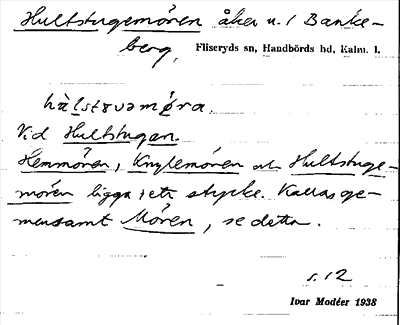 Hultstugemören åker u. 1 Banke-
berg,
Fliseryds sn, Handbörds hd, Kalm. l.
hùlstɤvəmøra.
Vid Hultstugan.
Hemmören, Knylemören och Hultstuge-
mören ligga i ett stycke. Kallas ge-
mensamt Mören, se detta.
s. 12
Ivar Modéer 1938